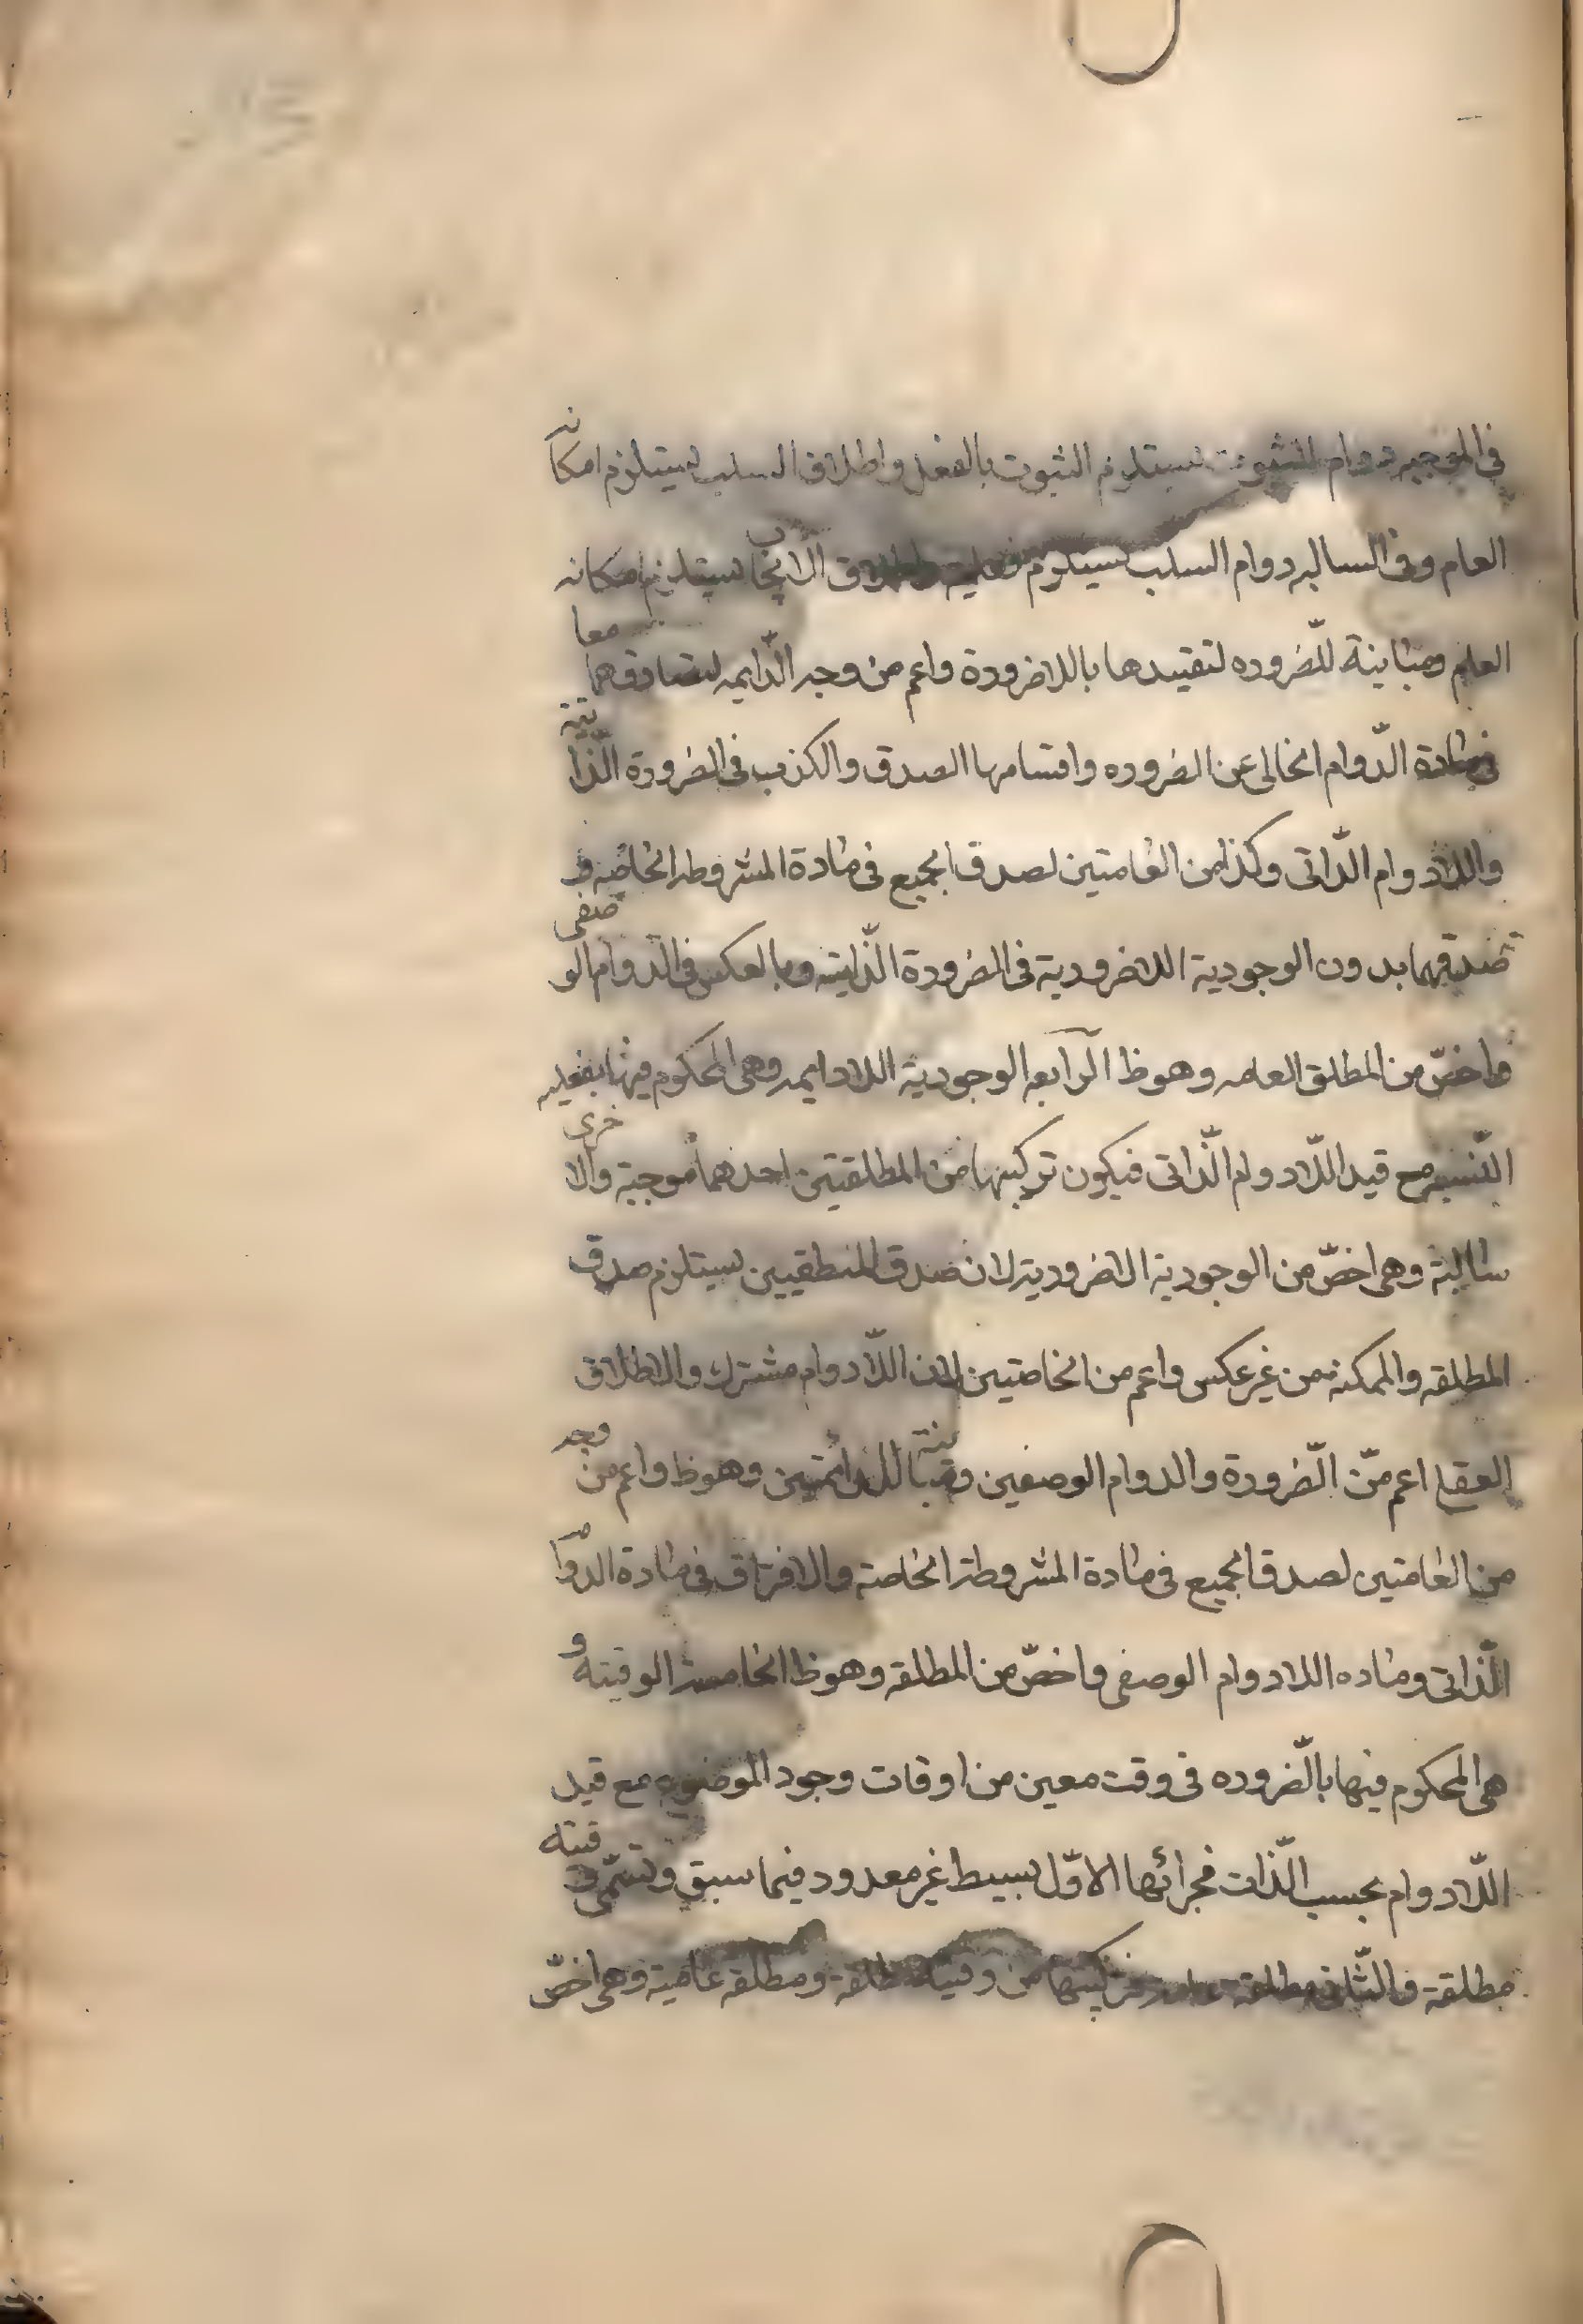 في الموجبه دوام الثبوت يستلزم الثبوت بالفعل واطلاق السلب يستلزم امكانه
العام وفي السالبه دوام السلب يستلزم فعليته واطلاق الايجاب يستلزم امكانه
العام ومباينة للضروره لتقييدها باللاضرورة واعم من وجه الدّايمه لتصادقهما معا
في مادة الدّوام الخالى عن الضروره واقتسامها الصدق والكذب في الضرورة الذّاتية
واللادوام الذّاتى وكذا من العامتين لصدق الجميع في مادة المشروطه الخاصه و
صدقهما بدون الوجودية اللاضرورية في الضرورة الذّاتيه وبالعكس في الدوام الوصفى
واخصّ من المطلق العامه وهو ظ الرّابعه الوجودية اللادايمه وهى المحكوم فيها بفعليه
النّسبه مع قيد اللّادوام الذّاتى فيكون تركيبها من المطلقتين احدهما موجبة والاخرى
سالبة وهى اخصّ من الوجودية الاضرورية لان صدق المنطقيين يستلزم صدق
المطلقه والممكنه من غير عكس واعم من الخاصتين لان اللّادوام مشترك والاطلاق
الفعلى اعم من الضّرورة والدوام الوصفين ومباينة للدائمتين وهو ظ واعم من وجه
من العامتين لصدق الجميع في مادة المشروطة الخاصة والافتراق في مادة الدوام
الذّاتى وماده اللادوام الوصفى واخصّ من المطلقه وهو ظ الخامسه الوقيته و
هى المحكوم فيها بالضّروره في وقت معين من اوقات وجود الموضوع مع قيد
اللّادوام بحسب الذّات فجزائها الاوّل بسيط غير معدود فيما سبق وتسمّى وقيته
مطلقة والثّانى مطلقة عامه فتركيبها من وقيته مطلقة ومطلقه عامية وهى اخصّ